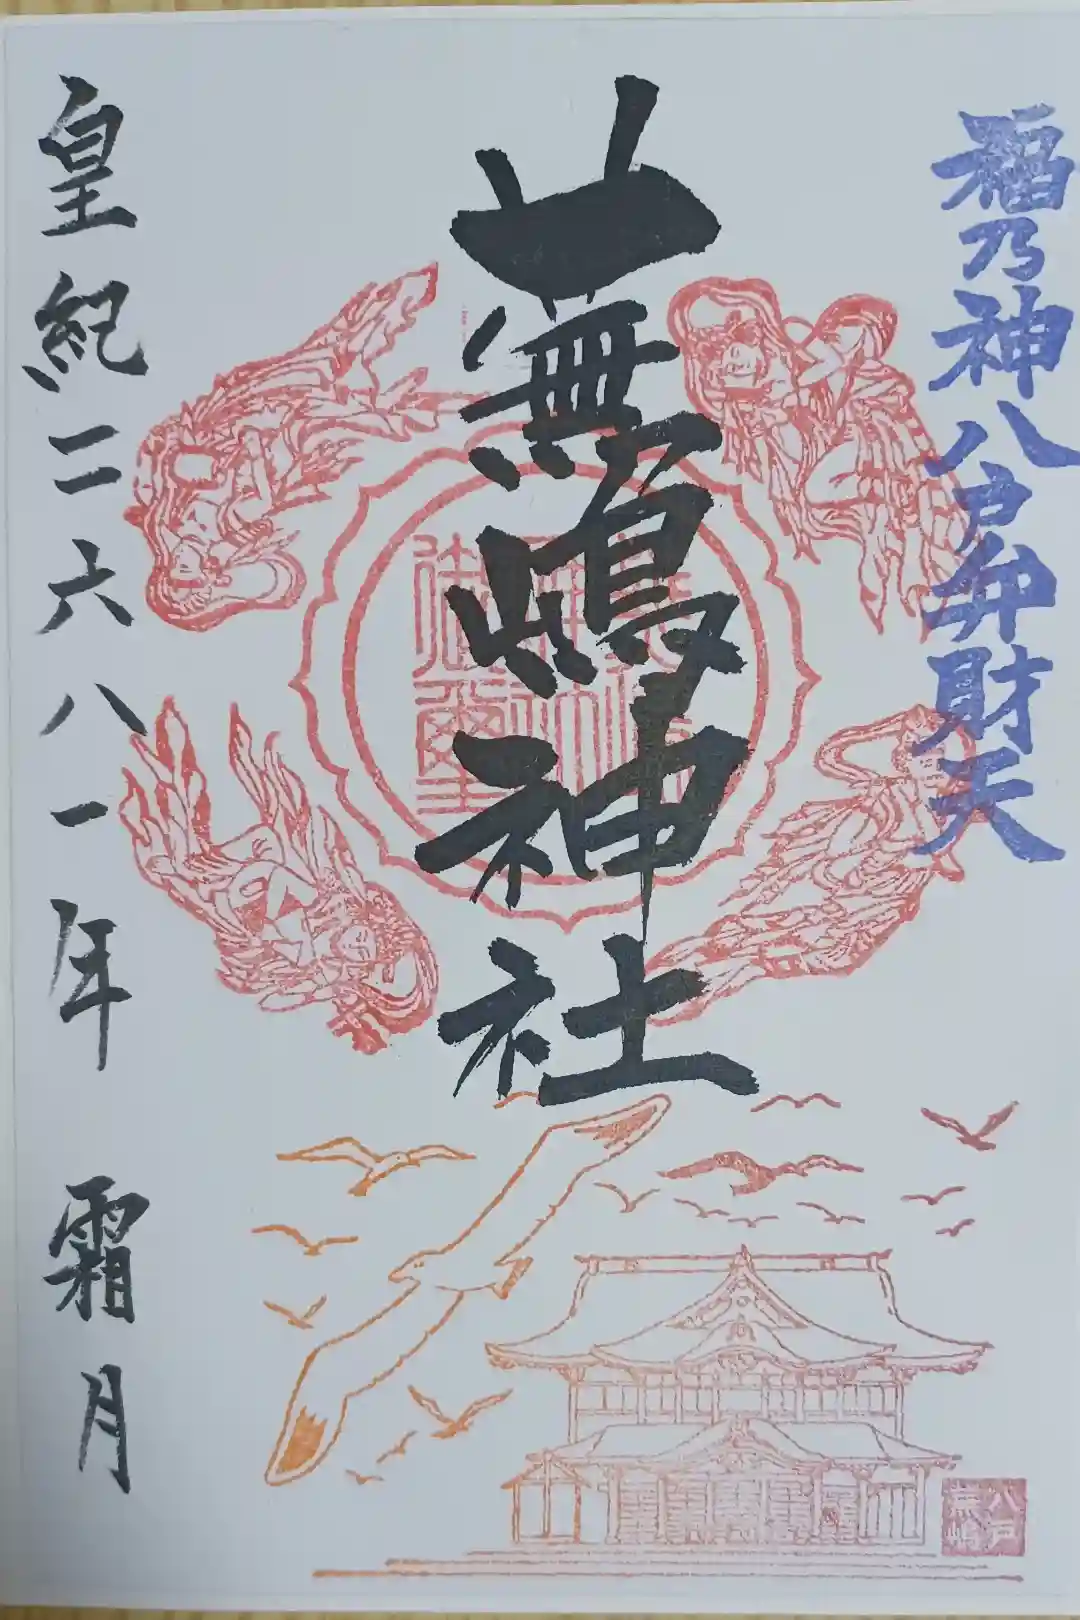 福乃神八戸弁財天
蕪嶋神社
皇紀二六八一年 霜月
八戸
蕪嶋